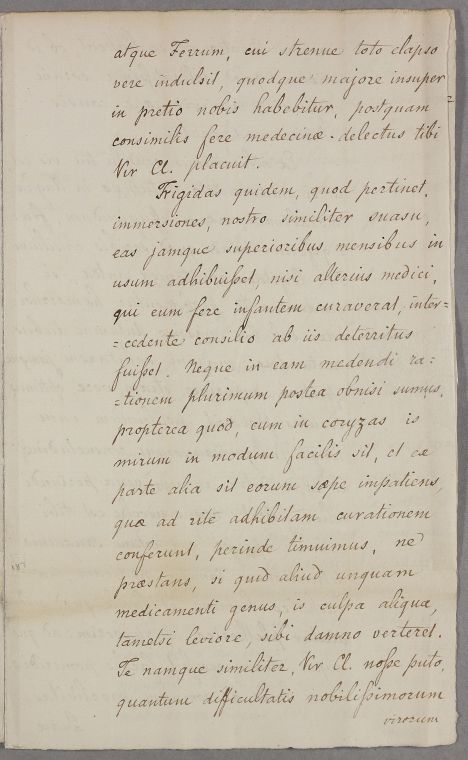 atque Ferrum, cui strenue toto elapso
vere indulsit, quodque majore insuper
in pretio nobis habebitur, postquam
consimilis fere medecinæ delectus tibi
Vir Cl. placuit.
Frigidas quidem, quod pertinet,
immersiones, nostro similiter suasu,
eas jamque superioribus mensibus in
usum adhibuisset, nisi allerius medici,
qui eum fere infantem curaverat, inter=
=cedente consilio ab iis deterritus
fuisset. Neque in eam medendi ra=
=tionem plurimum postea obnisi sumus,
propterea quod, cum in coryzas is
mirum in modum facilis sit, et ex
parte alia sit eorum sæpe impatiens,
quæ ad rité adhibitam curationem
conferunt, perinde timuimus, ne
præstans, si quid aliud unquam
medicamenti genus, is culpa aliqua,
tametsi leviore, sibi damno verteret.
Te namque similiter, Vir Cl. nosse puto,
quantum difficultatis nobilissimorum
virorum